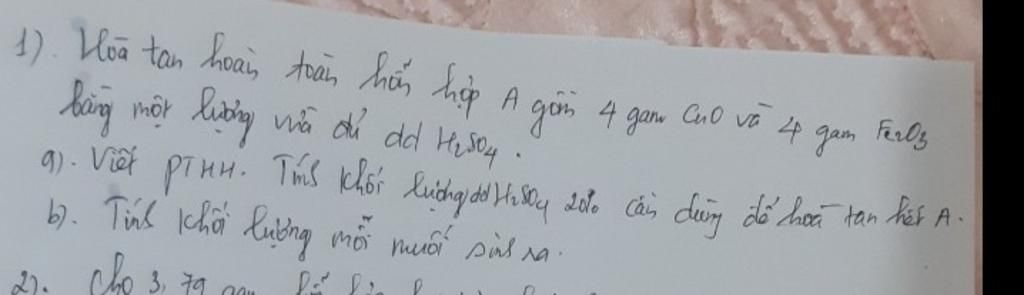 1). Hoà tan hoàn toàn hỗn hợp A gồm 4 gam CuO và 4 gam Fe2O3
bằng một lượng vừa đủ dd H2SO4.
a). Viết PTHH. Tính khối lượng dd H2SO4 20% cần dùng để hoà tan hết A.
b). Tính khối lượng mỗi muối sinh ra.
2). Cho 3,79 gam